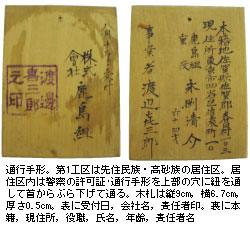 株式會社 鹿島組
渡邊
喜三郎
之印
本籍地
現住所
鹿島組
重役
事業者 渡辺喜三郎
通行手形。第1工区は先住民族・高砂族の居住区。居
住区内は警察の許可証・通行手形を上部の穴に紐を通
して首からぶら下げて通る。木札は縦9cm、横6.7cm、
厚さ0.5cm。表に受付日，会社名，責任者印。裏に本
籍，現住所，役職，氏名，年齢，責任者名